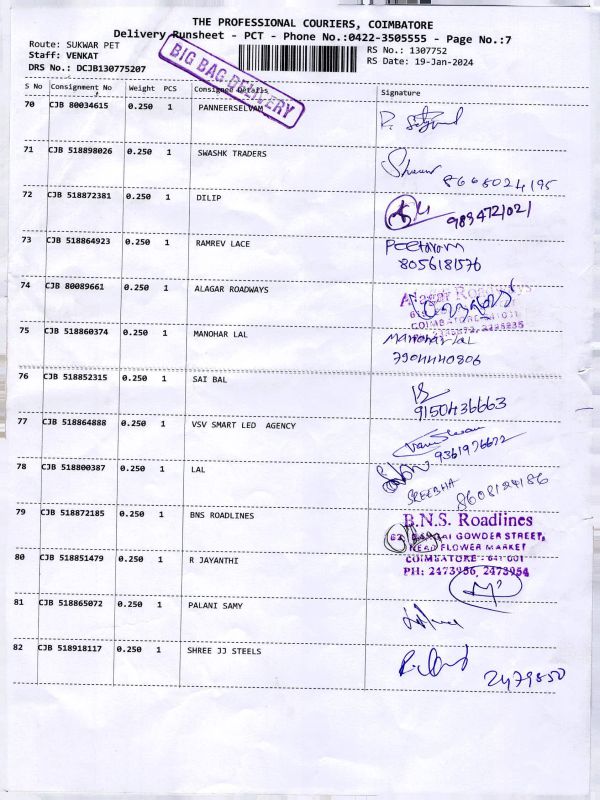 THE PROFESSIONAL COURIERS, COIMBATORE
Delivery Runsheet - PCT - Phone No.:0422-3505555 - Page No.:7
Route: SUKWAR PET
RS No.: 1307752
Staff: VENKAT
RS Date: 19-Jan-2024
DRS No.: DCJB130775207
BIG BAG DELIVERY
S No Consignment No Weight PCS Consignee Details Signature
70 CJB 80034615 0.250 1 PANNEERSELVAM
71 CJB 518898026 0.250 1 SWASHK TRADERS
72 CJB 518872381 0.250 1 DILIP
73 CJB 518864923 0.250 1 RAMREV LACE
8056181576
74 CJB 80089661 0.250 1 ALAGAR ROADWAYS
Alagar Roadways
75 CJB 518860374 0.250 1 MANOHAR LAL
Manohar lal
7904440806
76 CJB 518852315 0.250 1 SAI BAL
9150436663
77 CJB 518864888 0.250 1 VSV SMART LED AGENCY
9361976622
78 CJB 518800387 0.250 1 LAL
SREEBHA 8608124186
79 CJB 518872185 0.250 1 BNS ROADLINES
B.N.S. Roadlines
GOWDER STREET,
NEAR FLOWER MARKET
COIMBATORE - 641 001
PH: 2473956, 2473954
80 CJB 518851479 0.250 1 R JAYANTHI
81 CJB 518865072 0.250 1 PALANI SAMY
82 CJB 518918117 0.250 1 SHREE JJ STEELS
2479850